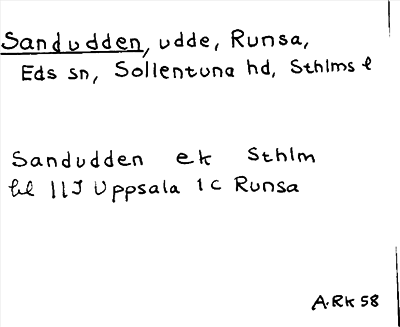 Sandudden, udde, Runsa,
Eds sn, Sollentuna hd, Sthlms l
Sandudden ek Sthlm
bl 11J Uppsala 1c Runsa
A.Rk 58